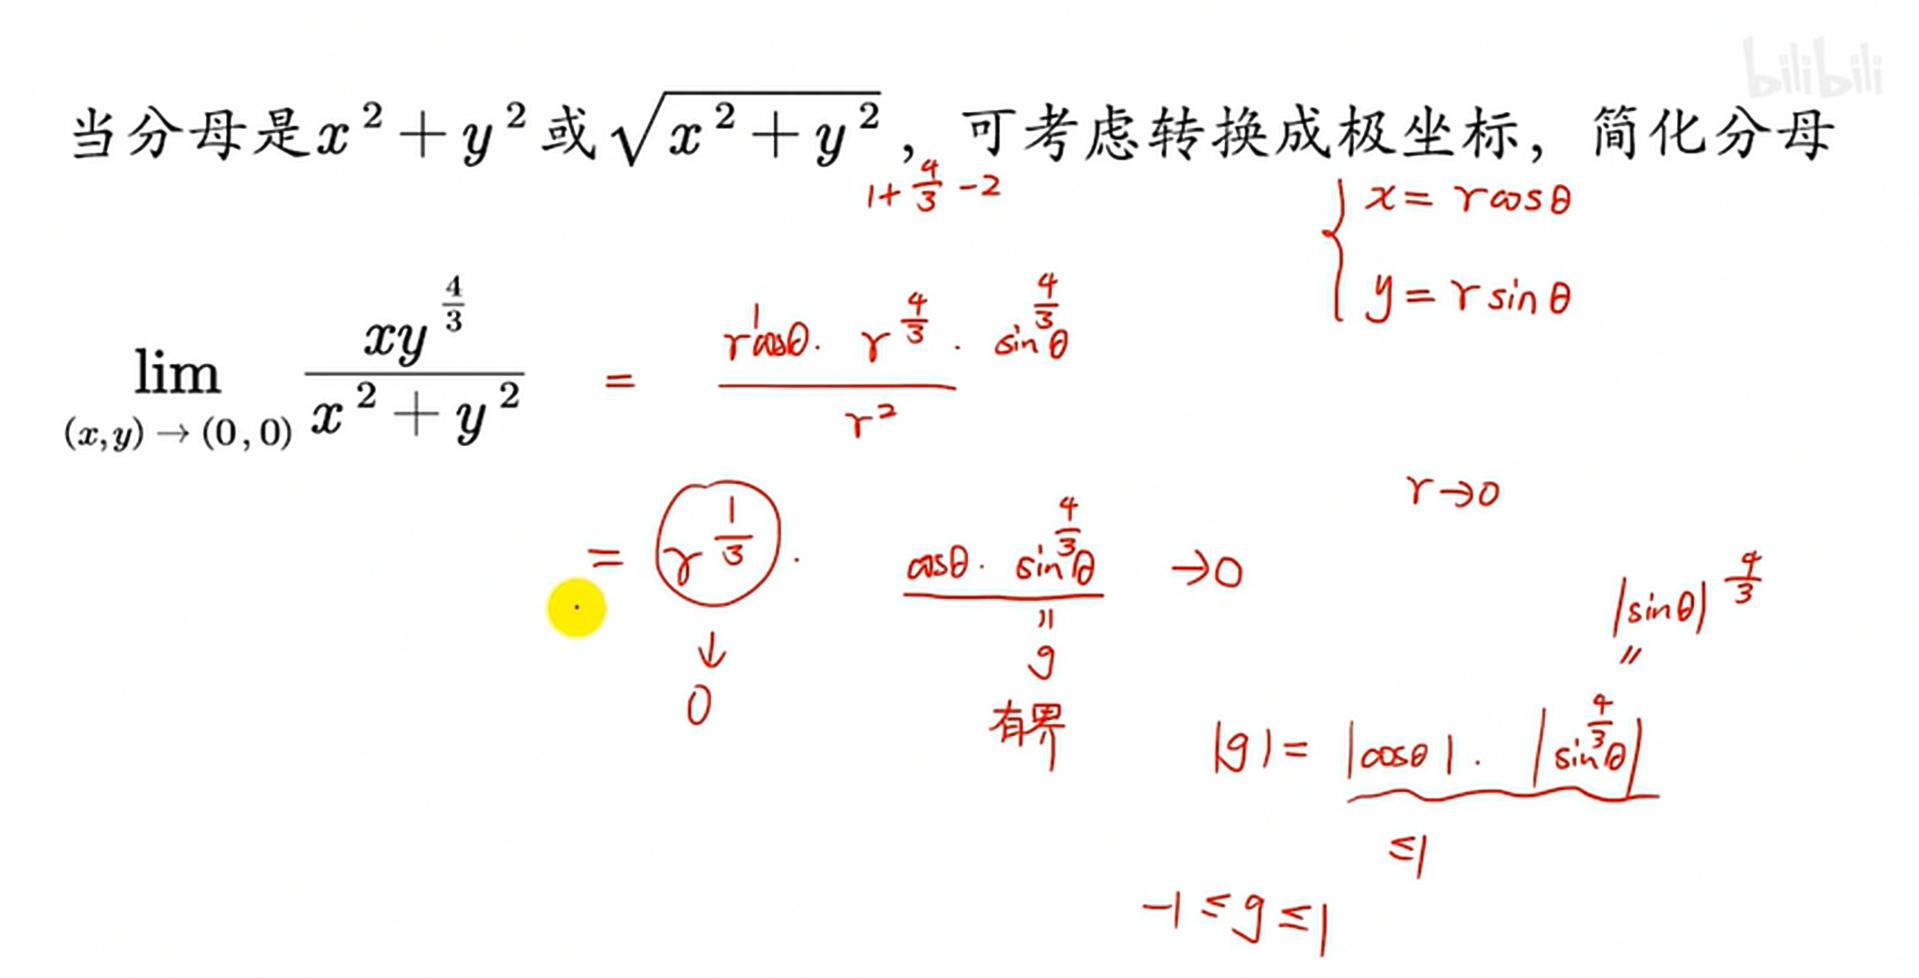 bilibili
当分母是x²+y²或√(x²+y²)，可考虑转换成极坐标，简化分母
1+4/3-2
{ x=rcosθ
y=rsinθ
lim (x,y)→(0,0) xy^(4/3)/(x²+y²) = r¹cosθ·r^(4/3)·sin^(4/3)θ / r²
r→0
= r^(1/3)· cosθ·sin^(4/3)θ →0
|sinθ|^(4/3)
↓ =
0 g
有界
=
|g|=|cosθ|·|sin^(4/3)θ|
≤1
-1≤g≤1